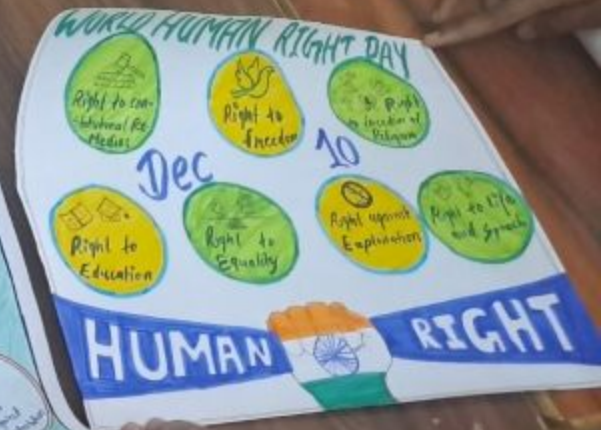 WORLD HUMAN RIGHT DAY
Right to con-
stitutional Re
Medies
Right to
freedom
Right
to freedom of
Religion
Dec 10
Right to
Education
Right to
Equality
Right against
Explanation
Right to life
and speech
HUMAN RIGHT